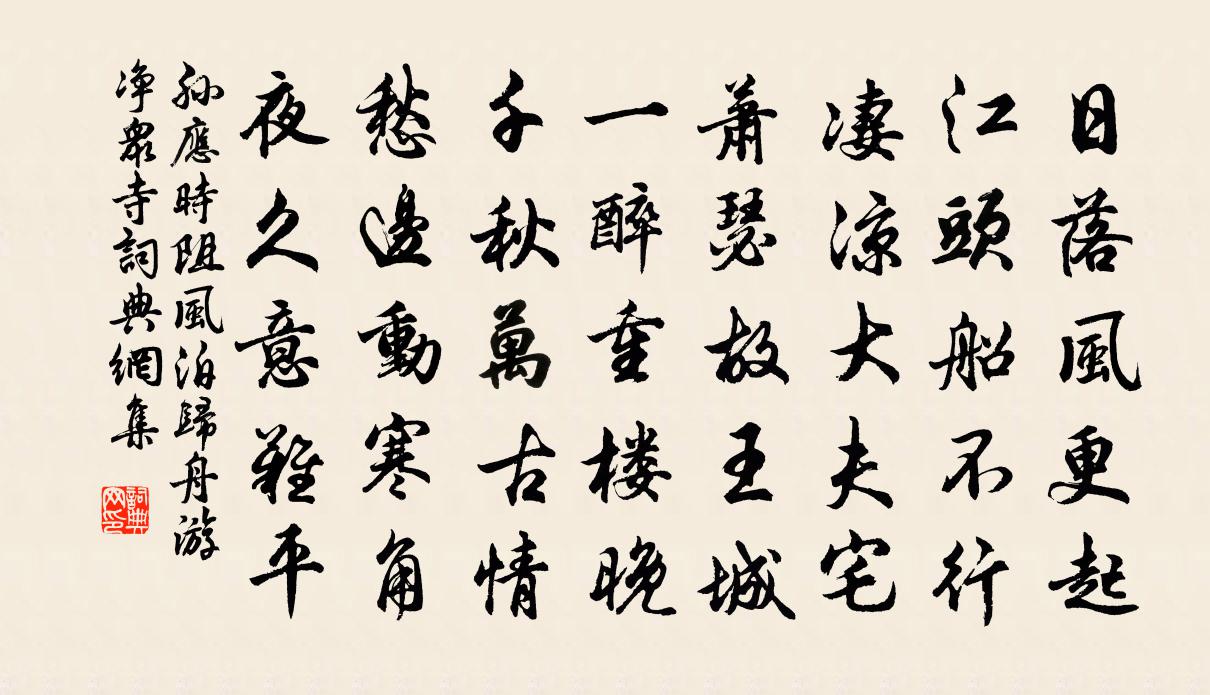 日落風更起
江頭船不行
凄涼大夫宅
蕭瑟故王城
一醉重楼晚
千秋萬古情
愁邊動寒角
夜久意難平
孙應時阻風泊歸舟游
净衆寺詞典網集
詞典
网印